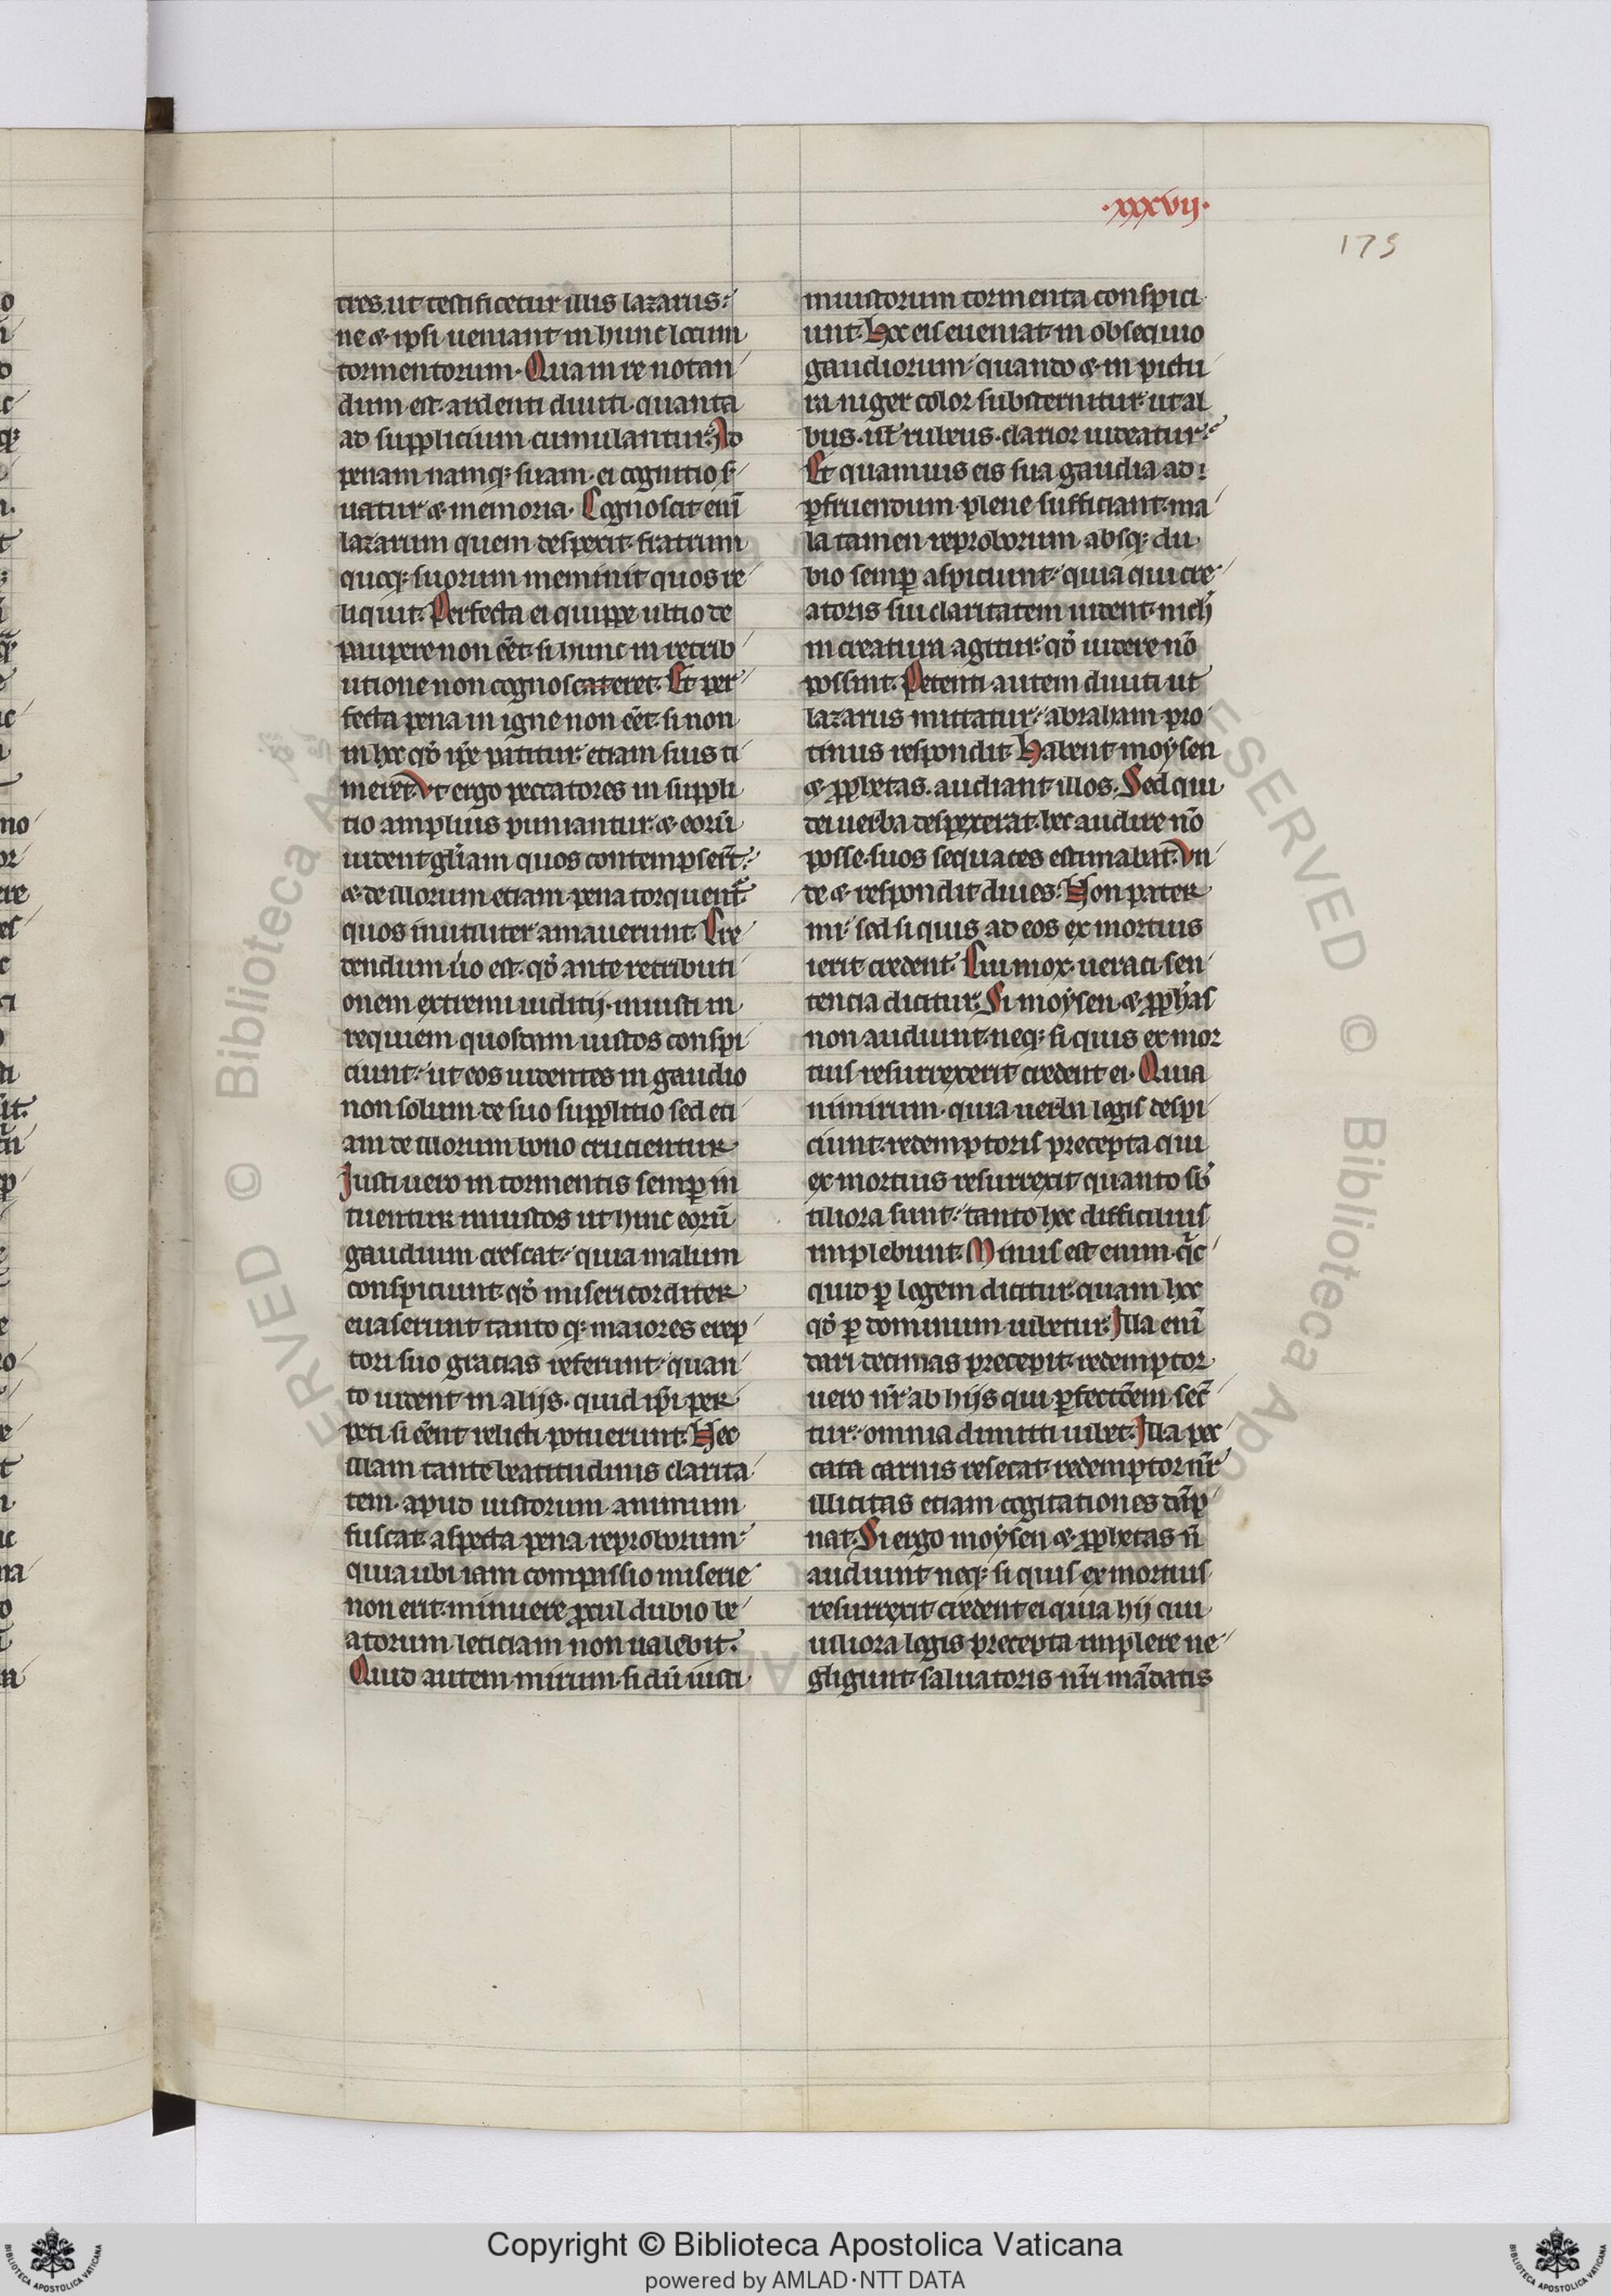 .xxxvij.
175
tres. ut testificetur illis lazarus:
ne & ipsi ueniant in hunc locum
tormentorum. Qua in re notan
dum est. ardenti diuiti. quanta
ad supplicium cumulantur. Ad
penam namq; suam. ei cognitio s̄
uatur & memoria. Cognoscit eni̅
lazarum quem despexit. fratrum
quoq; suorum meminit quos re
liquit. Perfecta ei quippe ultio de
paupere non eēt. si hunc in retrib
utione non cognosceret. Et per
fecta pena in igne non eēt. si non
in hoc qð ip̄e patitur etiam suis ti
meret. Ut ergo peccatores in suppli
tio amplius puniantur. & eoru̅
uident gl̄iam quos contempser̄t.
& de illorum etiam pena torquent᷑
quos inutiliter amauerunt. Cre
dendum u̇o est. qð ante retributi
onem extremi iuditij. iniusti in
requiem quosdam iustos conspi
ciunt. ut eos uidentes in gaudio
non solum de suo supplitio sed eti
am de illorum bono crucientur
Justi uero in tormentis semꝑ in
tuentur iniustos ut hinc eoru̅
gaudium crescat. quia malum
conspiciunt. qð misericorditer
euaserunt tanto q; maiores erep
tori suo gracias referunt. quan
to uident in alijs. quid ip̄i per
peti si eēnt relicti potuerunt. Nec
illam tante beatitudinis clarita
tem. apud iustorum animum
fuscat. aspecta pena reproborum:
quia ubi iam compassio miserie
non erit. minuere ꝓcul dubio be
atorum leticiam non ualebit.
Quid autem mirum. si du̅ iusti
iniustorum tormenta conspici
unt. hoc eis eueniat in obsequio
gaudiorum. quando & in pictu
ra niger color substernitur. ut al
bus. ut̄ rubeus. clarior uideatur.
Et quamuis eis sua gaudia ad
ꝑfruendum. plene sufficiant. ma
la tamen reproborum absq; du
bio semꝑ aspiciunt. quia qui cre
atoris sui claritatem uident. nich̄
in creatura agitur. qð uidere no̅
possint. Petenti autem diuiti ut
lazarus mittatur. abraham pro
tinus respondit. Habent moysen
& ꝓphetas. audiant illos. Sed qui
dei uerba despexerat. hec audire no̅
posse. suos sequaces estimabat. Vn
de & respondit diues. Non pater
mi. sed si quis ad eos ex mortuis
ierit credent. Cui mox. ueraci sen
tencia dicitur. Si moysen & ꝓph̄as
non audiunt. neq; si quis ex mor
tuis resurrexerit credent ei. Quia
nimirum. quia uerba legis despi
ciunt. redemptoris precepta qui
ex mortuis resurrexit quanto sb̄
tiliora sunt. tanto hec difficilius
implebunt. Minus est enim. q̄c
quid ꝑ legem dicitur. quam hoc
qð ꝑ dominum iubetur. Illa eni̅
dari decimas precepit. redemptor
uero nr̄ ab hijs qui ꝑfectōem. sec̄
tur. omnia dimitti iubet. Illa pec
cata carnis resecat. redemptor nr̄
illicitas etiam cogitationes da̅p
nat. Si ergo moysen & ꝓphetas n̄
audiunt neq; si quis ex mortuis
resurrexit credent ei quia hij qui
uiliora legis precepta implere ne
gligunt. saluatoris nr̄i ma̅datis
Copyright © Biblioteca Apostolica Vaticana
powered by AMLAD·NTT DATA